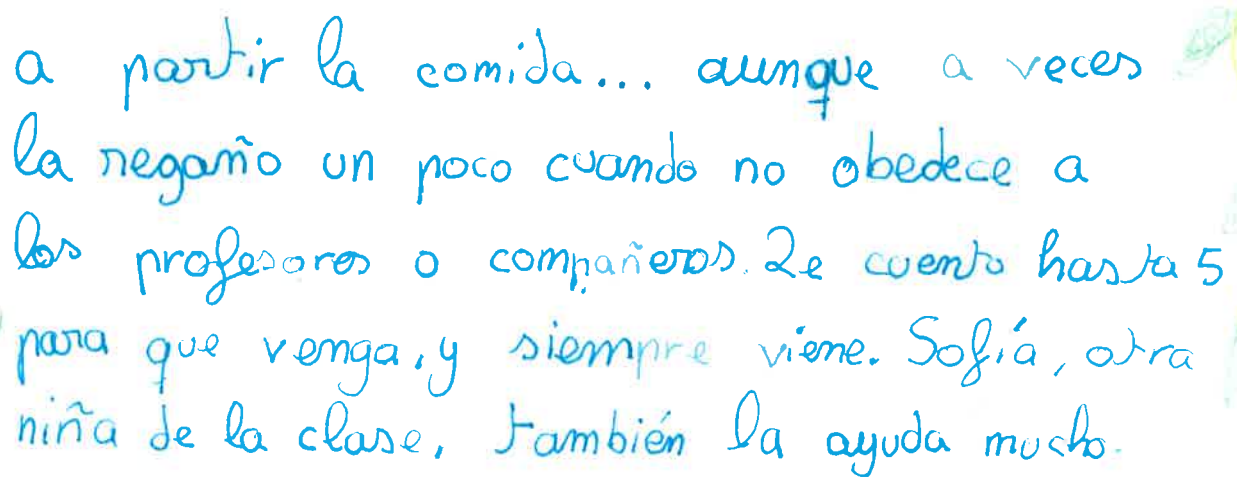 a partir la comida... aunque a veces
la regaño un poco cuando no obedece a
los profesores o compañeros. Le cuento hasta 5
para que venga, y siempre viene. Sofía, otra
niña de la clase, también la ayuda mucho.